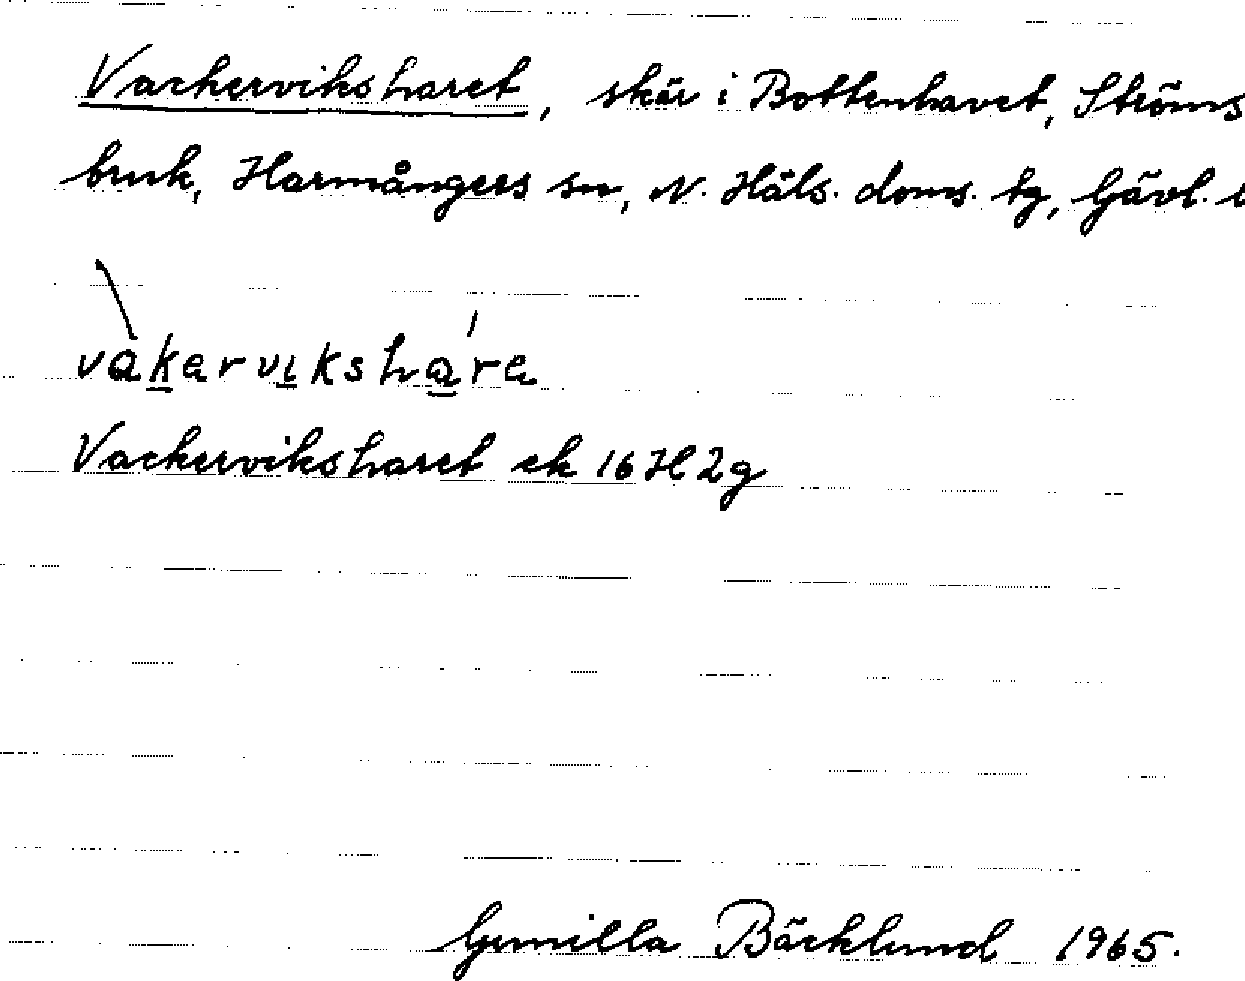 Vackerviksharet, skär i Bottenhavet, Ströms
bruk, Harmångers sn, N. Häls. doms. tg, Gävl. l
vàkarviksháre
Vackerviksharet ek 16H2g
Gunilla Bäcklund 1965.